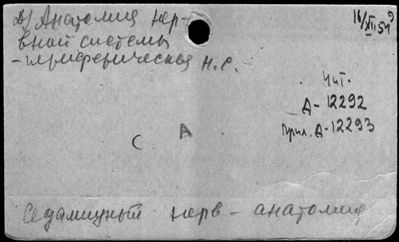 д) Анатомия нер-
вной системы
- периферическая н.с.
16/XII 59
Чит.
А-12292
Прил. А-12293
С А
Седалищный нерв - анатомия